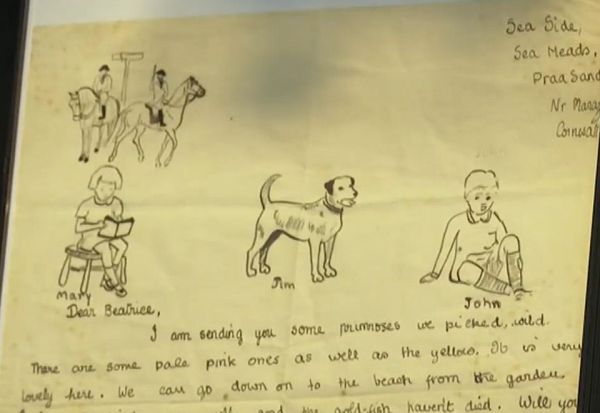 Sea Side,
Sea Meads,
Praa Sand
Nr Maraz
Cornwall
Mary
Jim
John
Dear Beatrice,
I am sending you some primroses we picked, wild.
There are some pale pink ones as well as the yellow. It is very
lovely here. We can go down on to the beach from the garden
and the gold-fish haven't died. Will you